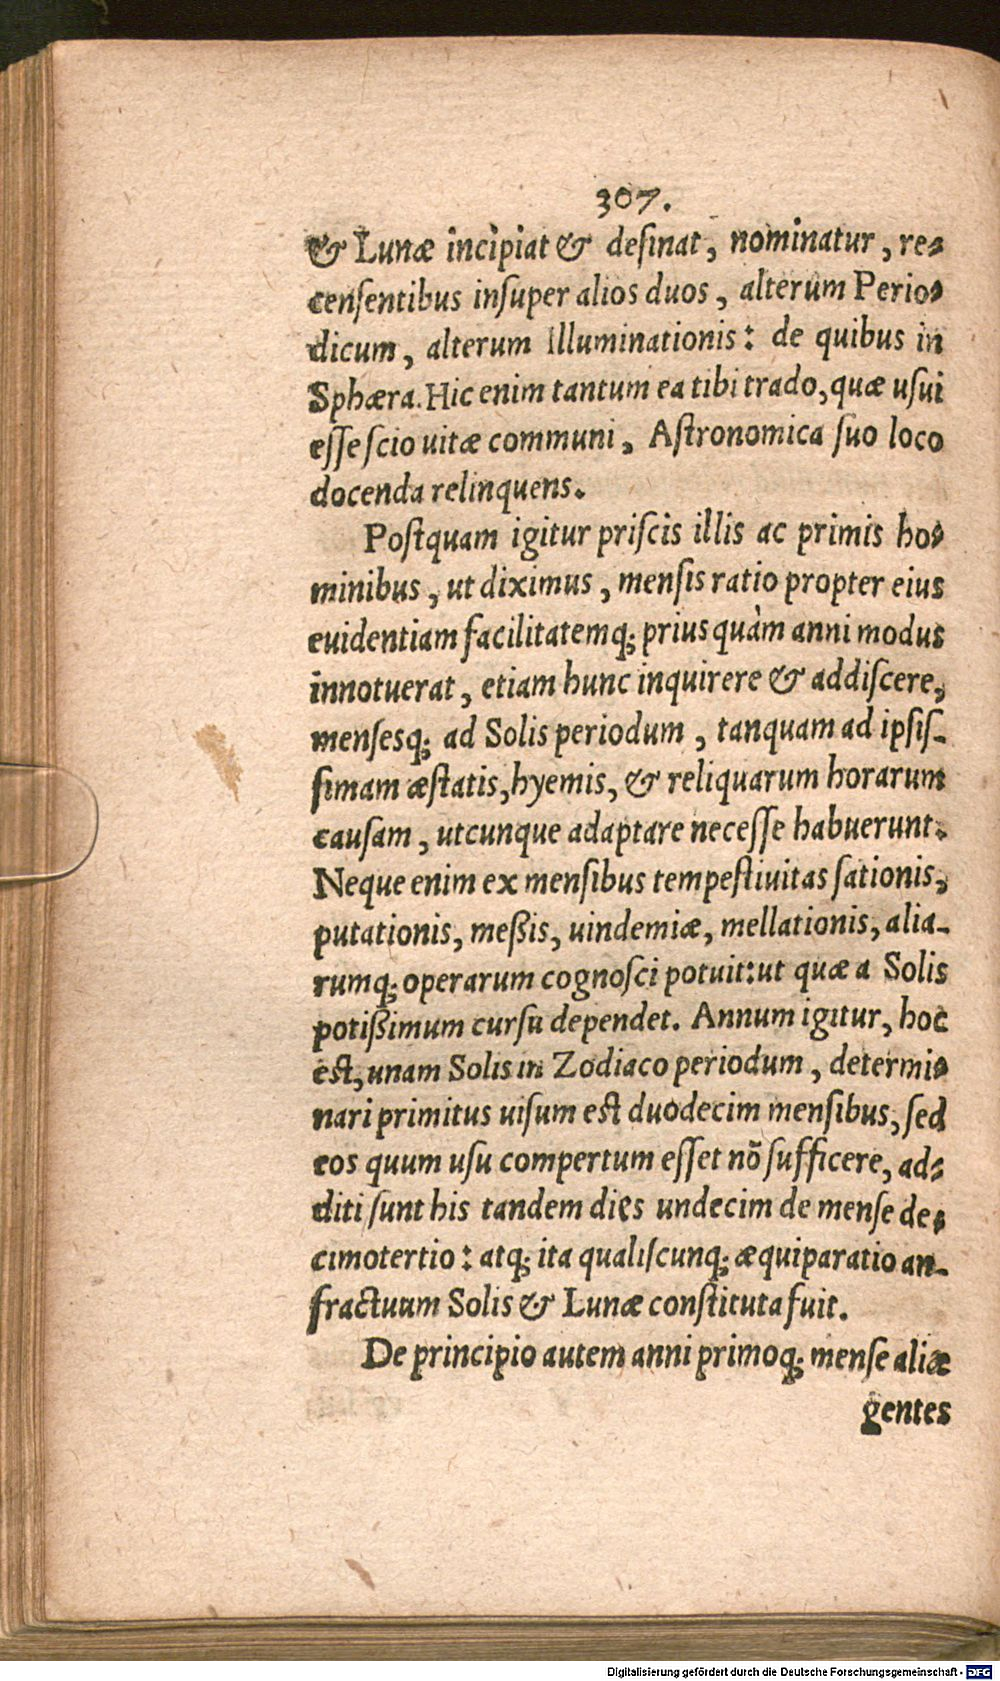 307.
& Lunæ incipiat & desinat, nominatur, re-
censentibus insuper alios duos, alterum Perio-
dicum, alterum Illuminationis: de quibus in
Sphæra. Hic enim tantum ea tibi trado, quæ usui
esse scio uitæ communi, Astronomica suo loco
docenda relinquens.
Postquam igitur priscis illis ac primis ho-
minibus, ut diximus, mensis ratio propter eius
euidentiam facilitatemq; prius quàm anni modus
innotuerat, etiam hunc inquirere & addiscere,
mensesq; ad Solis periodum, tanquam ad ipsis-
simam æstatis, hyemis, & reliquarum horarum
causam, utcunque adaptare necesse habuerunt.
Neque enim ex mensibus tempestiuitas sationis,
putationis, meßis, uindemiæ, mellationis, alia-
rumq; operarum cognosci potuit: ut quæ a Solis
potißimum cursu dependet. Annum igitur, hoc
est, unam Solis in Zodiaco periodum, determi-
nari primitus uisum est duodecim mensibus, sed
eos quum usu compertum esset nõ sufficere, ad-
diti sunt his tandem dies undecim de mense de-
cimotertio: atq; ita qualiscunq; æquiparatio an-
fractuum Solis & Lunæ constituta fuit.
De principio autem anni primoq; mense aliæ
gentes
Digitalisierung gefördert durch die Deutsche Forschungsgemeinschaft - DFG